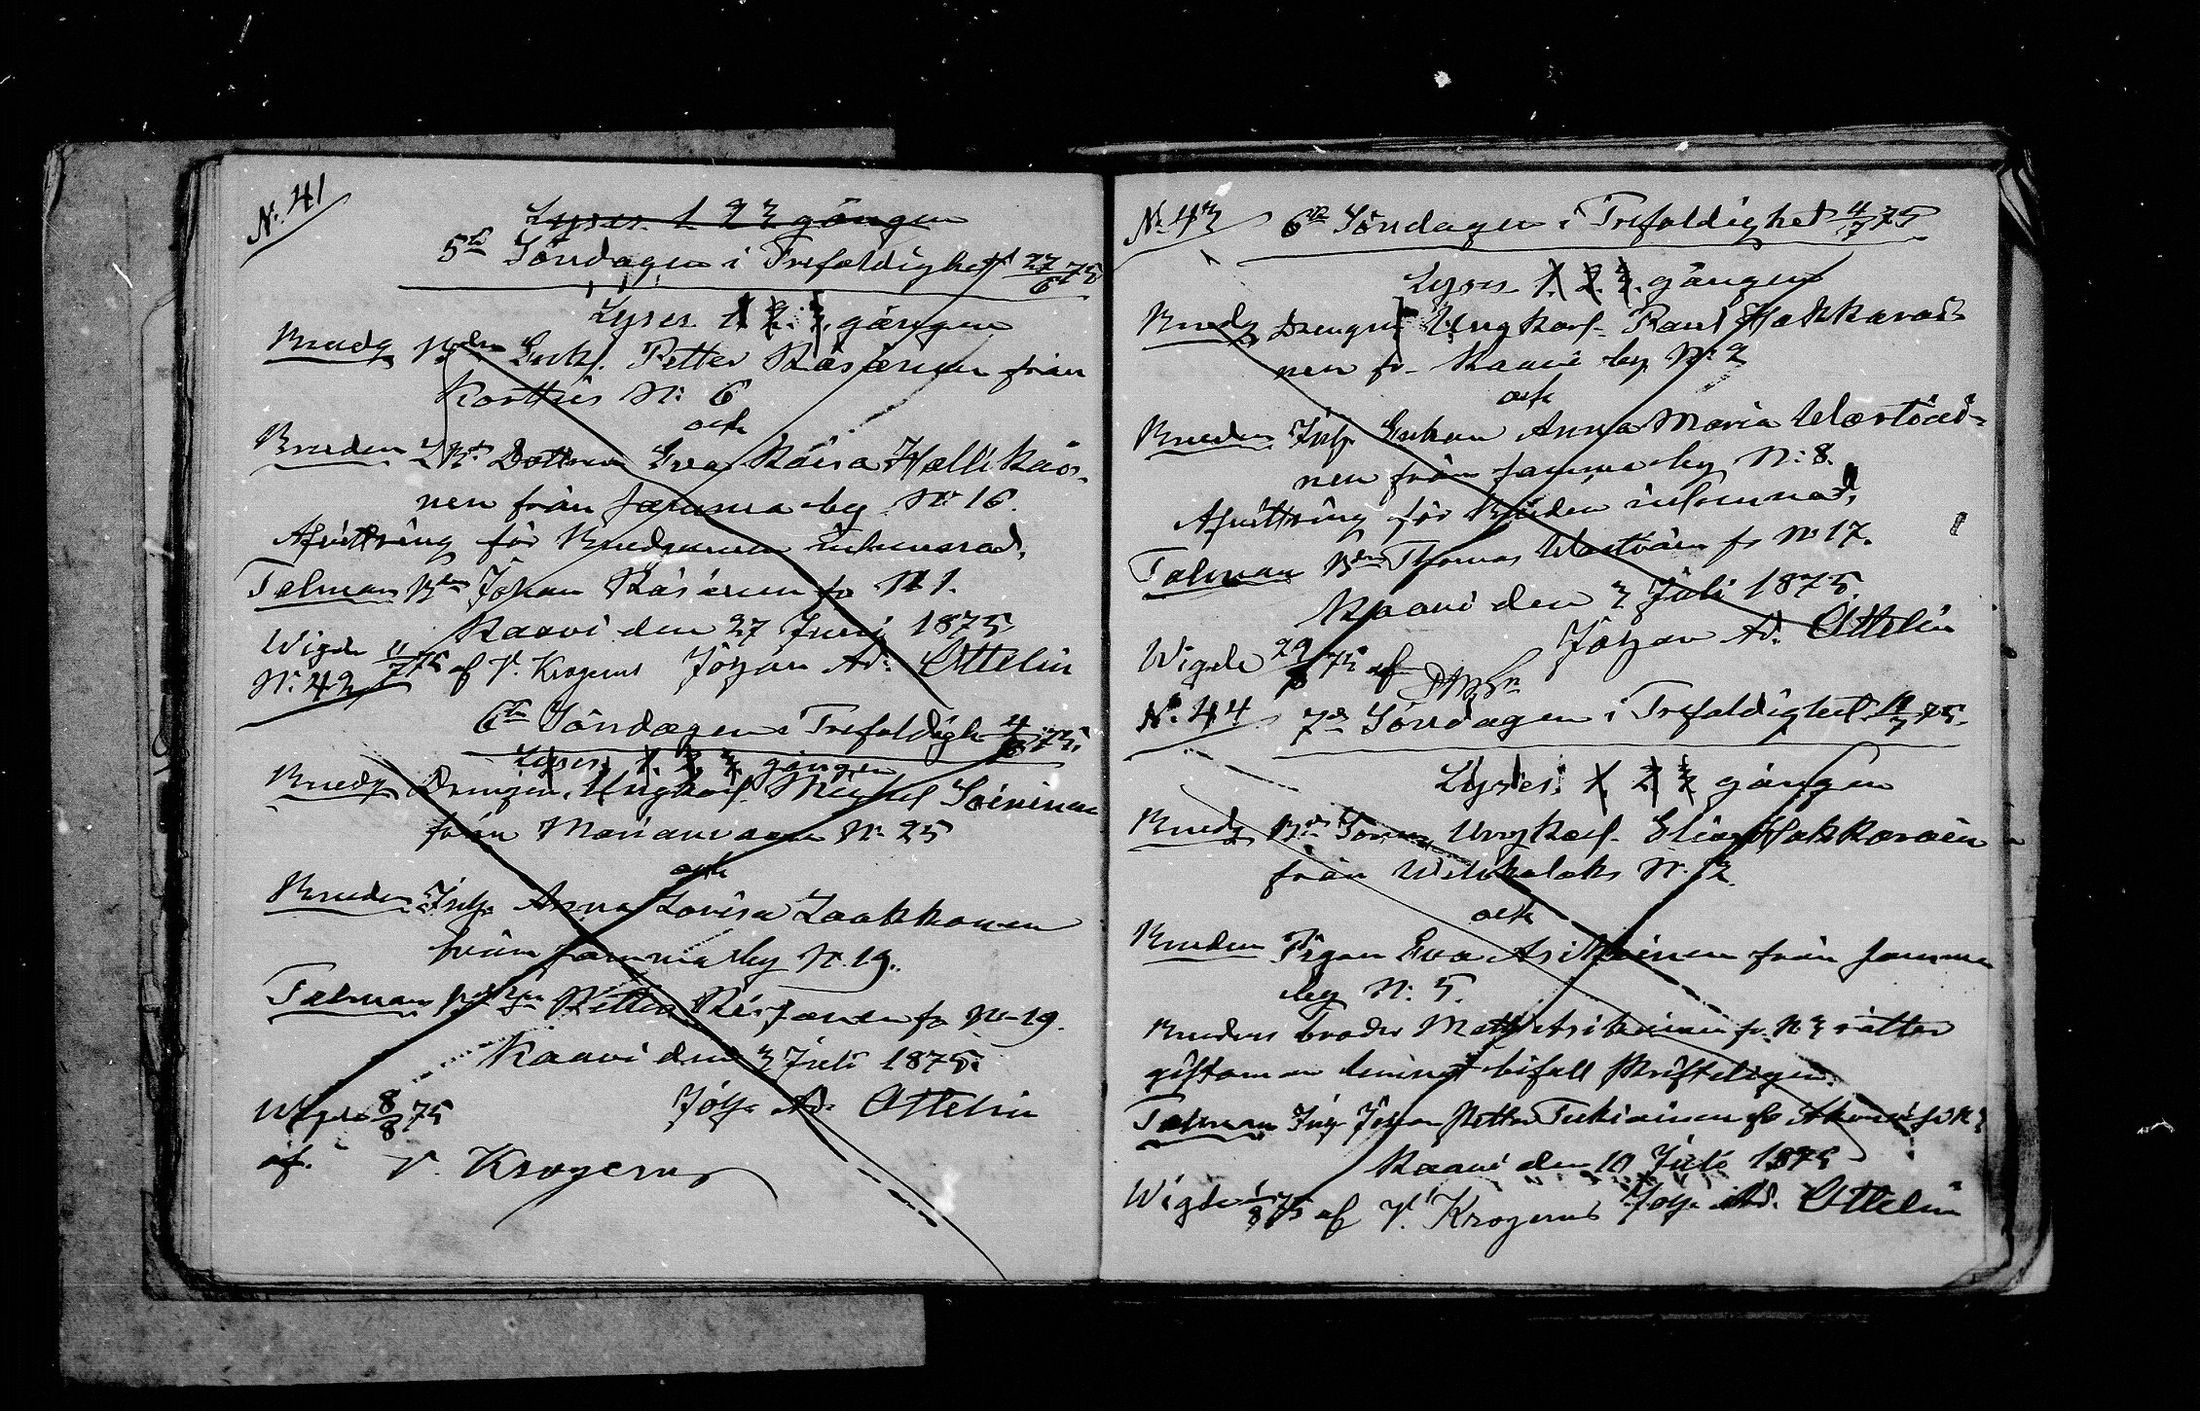 N: 41
Lyses 1 2 3 gången
5te Söndagen i Trefaldighet 27/6 75
Lyses 1. 2. 3. gången
Brudg. Enkl. Petter Räsänen från
Korttis N: 6
och
Bruden Dottren Eva Kaisa Hallikai-
nen från samma by N: 16.
Afvittring för Brudgummen inlemnad.
Talman Bden Johan Räsänen fr N 1.
Kaavi den 27 Juni 1875
Wigde 11/7 75 af V. Krogerus Johan Ad. Ottelin
N: 42
6te Söndagen i Trefaldigh. 4/7 75.
Lyses 1. 2. 3. gången
Brudg. Drengen, Ungkarl. Michel Soininen
från Marianvaara N: 25
och
Bruden Inh. Anna Lovisa Laakkonen
från samma by N. 19.
Talman Petter fr N 19.
Kaavi den 3 Juli 1875.
Wigde 8/8 75 Joh. Ad. Ottelin
af. V. Krogerus
N: 43 6te Söndagen i Trefaldighet 4/7 75
Lyses 1. 2. 3. gången
Brudg Drengen Ungkarl. Paul Hakkarai-
nen fr. Kaavi by N: 2
och
Bruden Inh. Enkan Anna Maria Wartiai-
nen från samma by N: 8.
Afvittring för Bruden inlemnad,
Talman Bden Thomas Wartiain fr N 17.
Kaavi den 3 Juli 1875.
Johan Ad. Ottelin
Wigde 29/8 75 af
N: 44 7de Söndagen i Trefaldighet 11/7 75.
Lyses 1 2 3 gången
Brudg Bd. Sonen Ungkarl. Elias Hakkarain
från Wihtalaks N: 2.
och
Bruden Pigan Eva Asikainen från samma
by N: 5.
Brudens broder Matts Asikainen fr. N 3 rätter
giftoman lemnat bifall skrifteligen.
Talman Inh. Johan Petter Tukiainen fr
Kaavi den 10 Juli 1875
Wigde 1/8 75 af V. Krogerus Joh. Ad. Ottelin